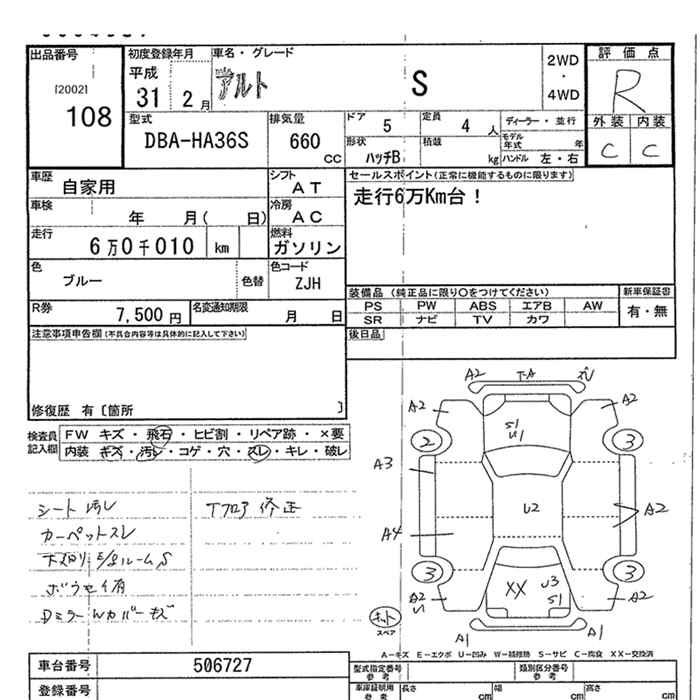 出品番号 初度登録年月 車名・グレード 評価点
[2002] 平成 アルト S 2WD ・ 4WD R
108 31 2月
型式 排気量 ドア 定員 ディーラー・並行 外装 内装
DBA-HA36S 660 CC 5 4 人 モデル年式 年 C C
形状 積載
ハッチB kg ハンドル 左・右
車歴 自家用 シフト AT セールスポイント(正常に機能するものに限ります)
車検 年 月( 日) 冷房 AC 走行6万Km台!
走行 6万0千010 km 燃料 ガソリン
色 ブルー 色替 色コード ZJH
装備品 (純正品に限り○をつけてください) 新車保証書
R券 7,500円 名変通知期限 月 日 PS PW ABS エアB AW 有・無
SR ナビ TV カワ
注意事項申告欄(不具合内容等は具体的に記入して下さい) 後日品
修復歴 有〔箇所 〕
検査員記入欄 FW キズ・飛石・ヒビ割・リペア跡・×要
内装 キズ・汚レ・コゲ・穴・スレ・キレ・破レ
シート汚レ Tフロア修正
カーペットスレ
下廻り E/gルームS
Dミラー Wカバーキズ
A2 T-A ズレ
A2 A2
S1
U1
2 3
A3
U2 A2
A4
3 3
XX U3
S1
A2 A2
U
キット
スペア
A1 A1
A-キズ E-エクボ U-凹み W-補修跡 S-サビ C-腐食 XX-交換済
車台番号 506727 型式指定番号 参考 類別区分番号 参考
登録番号 車庫証明用 参考 長さ cm 幅 cm 高さ cm